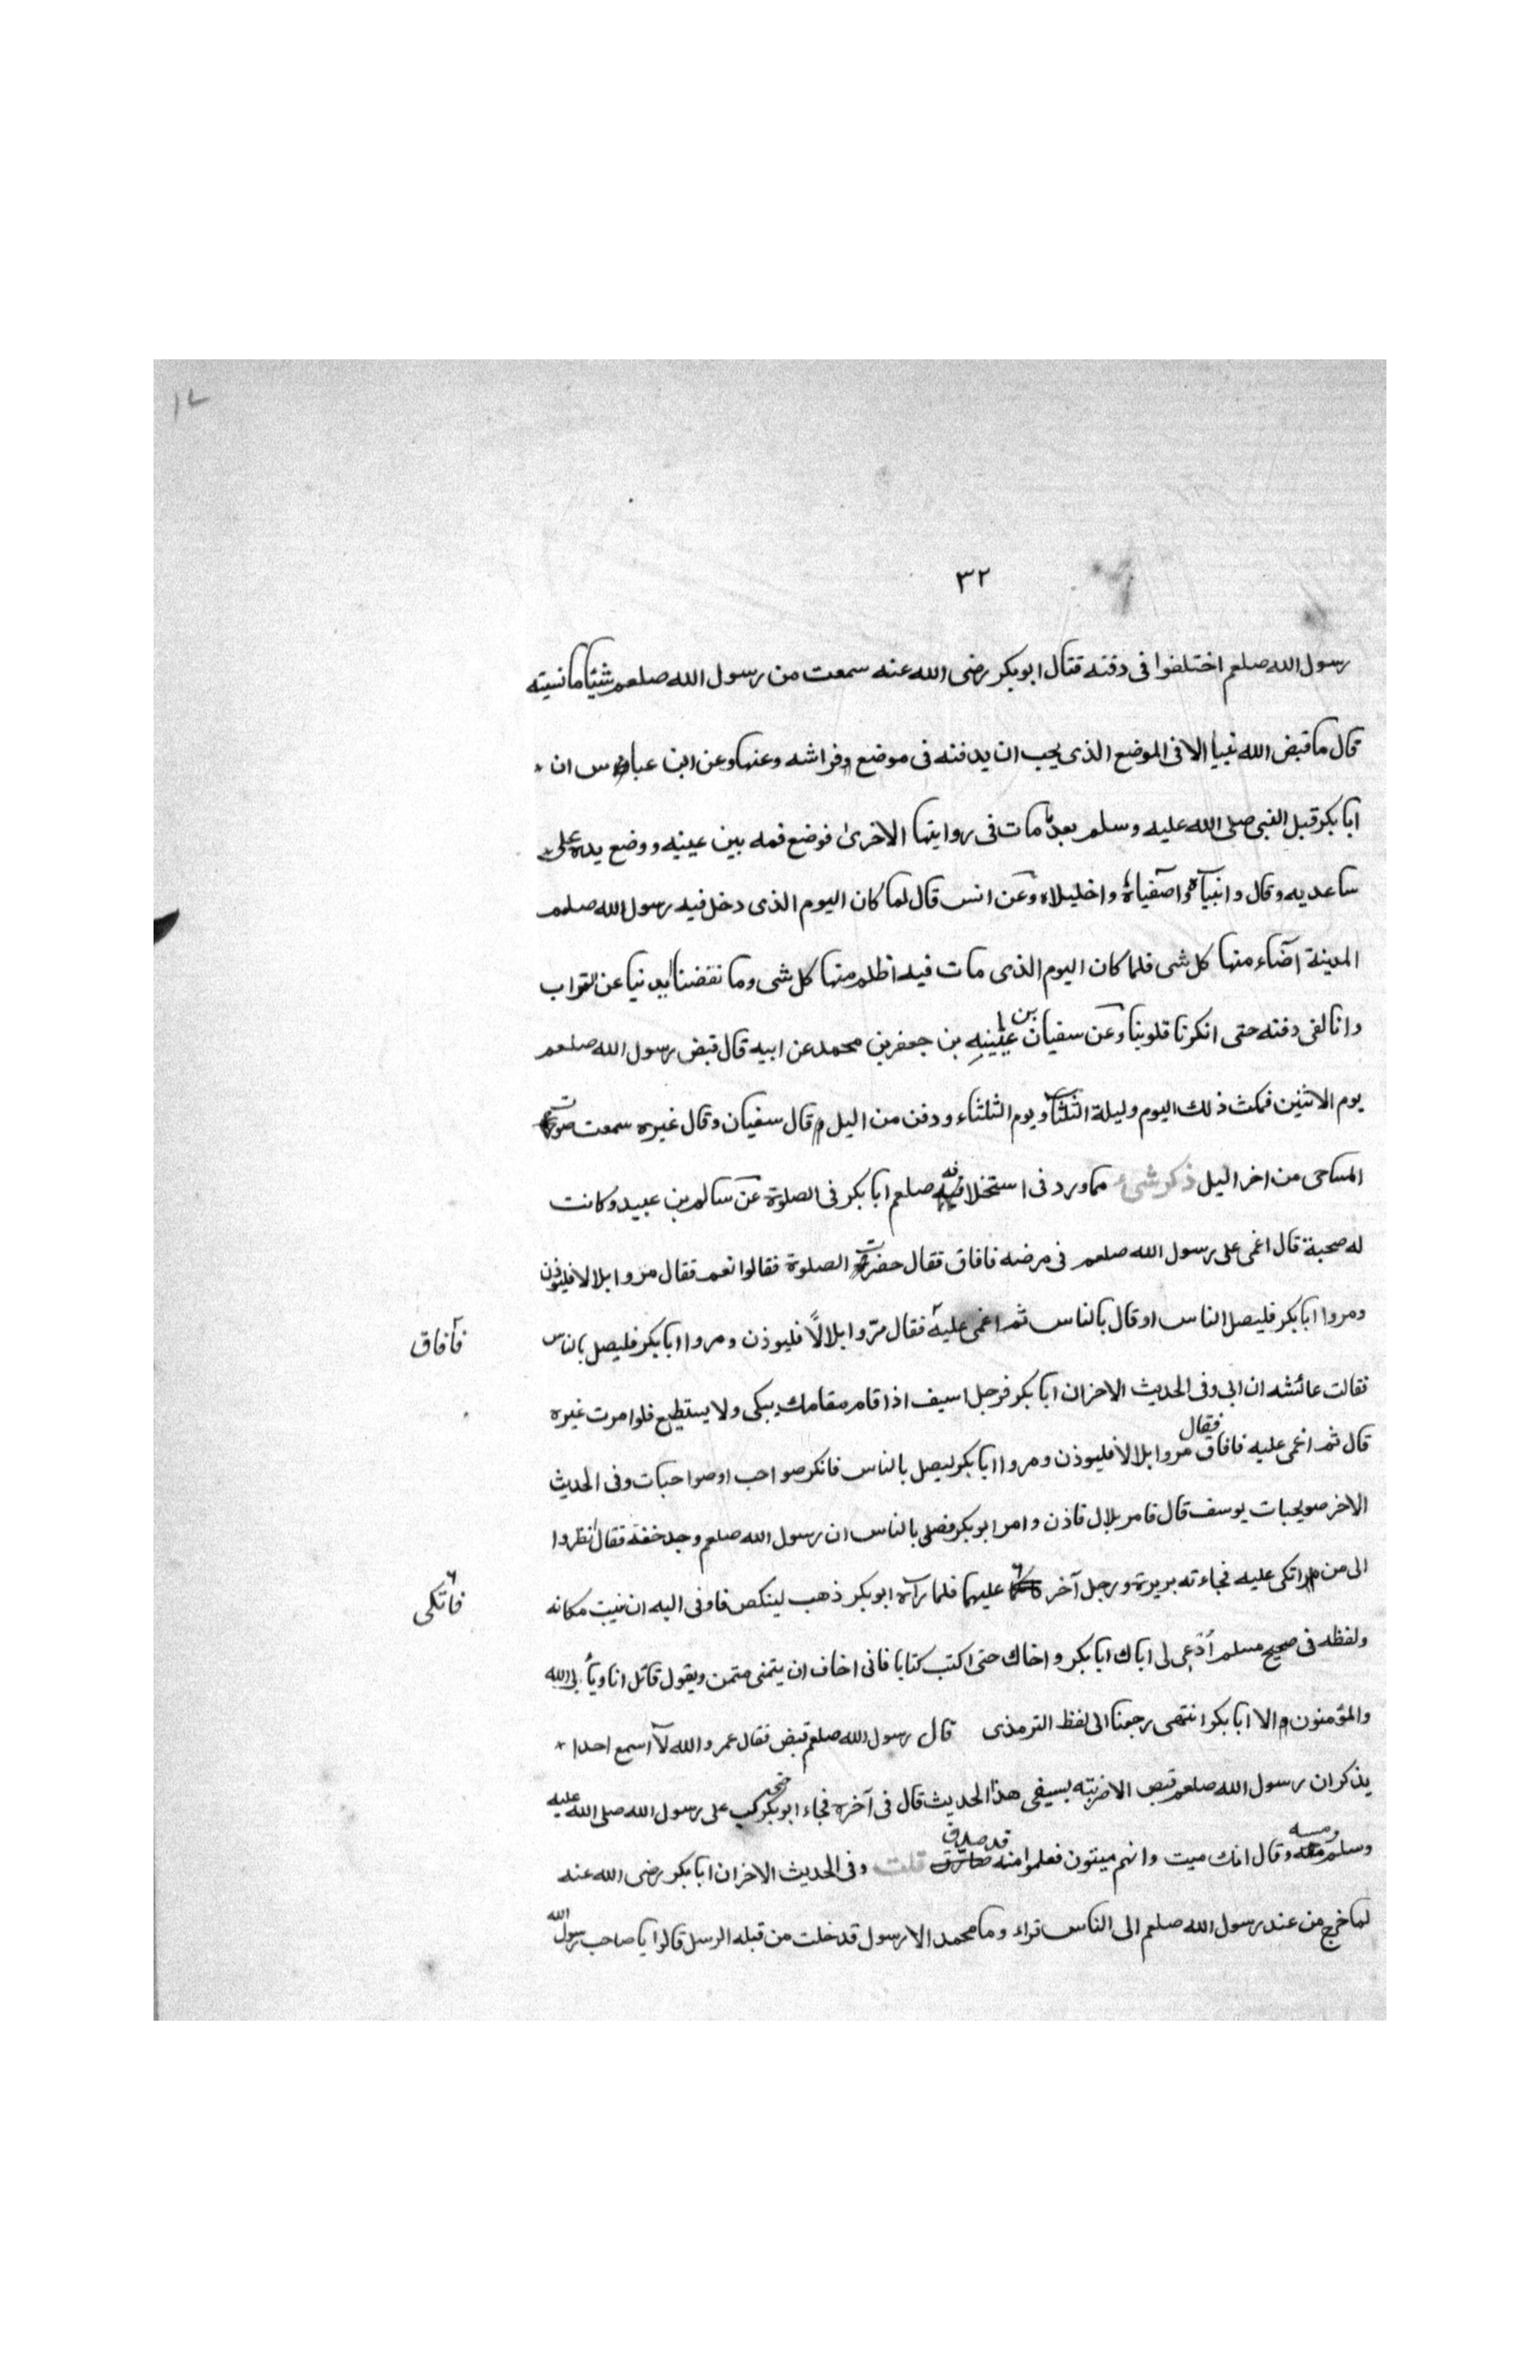 ٣٢
رسول الله صلعم اختلفوا فى دفنه فقال ابوبكر رضى الله عنه سمعت من رسول الله صلعم شيئا ما نسيته
قال ما قبض الله نبيا الا فى الموضع الذى يحب ان يدفنه فى موضع فراشه وعنها وعن ابن عباس ان
ابا بكر قبل النبى صلى الله عليه وسلم بعد ما مات فى روايتها الاخرى فوضع فمه بين عينيه ووضع يده على
ساعديه وقال وانبياه واصفياه واخليلاه وعن انس قال لما كان اليوم الذى دخل فيه رسول الله صلعم
المدينة اضاء منها كل شى فلما كان اليوم الذى مات فيه اظلم منها كل شى وما نفضنا ايدنيا عن التراب
وانا لفى دفنه حتى انكرنا قلوبنا وعن سفيان بن عيينه بن جعفر بن محمد عن ابيه قال قبض رسول الله صلعم
يوم الاثنين فمكث ذلك اليوم وليلة الثلثا ويوم الثلثاء ودفن من اليل قال سفيان وقال غيره سمعت صوت
المساحى من اخر اليل ذكر شىء مما ورد فى استخلافه صلعم ابا بكر فى الصلوة عن سالم بن عبيد وكانت
له صحبة قال اغمى على رسول الله صلعم فى مرضه فافاق فقال حضرت الصلوة فقالوا نعم فقال مروا بلالا فليوذن
ومروا ابا بكر فليصل الناس او قال بالناس ثم اغمى عليه فقال مرّوا بلالاً فليوذن ومروا ابا بكر فليصل بالناس
فأفاق
فقالت عائشه ان ابى وفى الحديث الاخر ان ابا بكر رجل اسيف اذا قام مقامك يبكى ولا يستطيع فلو امرت غيره
قال ثم اغمى عليه فافاق فقال مروا بلالا فليوذن ومروا ابا بكر ليصل بالناس فانكن صواحب او صواحبات وفى الحديث
الاخر صويحبات يوسف قال فامر بلال فاذن وامر ابو بكر فصلى بالناس ان رسول الله صلعم وجد خفة فقال انظروا
الى من اتكى عليه فجاءته بريرة ورجل آخر عليهما فلما رآه ابو بكر ذهب لينكص فاوفى اليه ان نيبت مكانه
فاتكى
ولفظه فى صحيح مسلم أدعى لى اباك ابا بكر واخاك حتى اكتب كتابا فانى اخاف ان يتمنى متمن ويقول قائل انا ويأبى الله
والمؤمنون الا ابا بكر انتهى رجعنا الى لفظ الترمذى قال رسول الله صلعم قبض فقال عمر والله لا اسمع احدا
يذكر ان رسول الله صلعم قبض الا ضربته بسيفى هذا الحديث قال فى آخره فجاء ابو بكر كب على رسول الله صلى الله عليه
وسلم ومسه وقال انك ميت وانهم ميتون فعلموا منه قد صدق قلت وفى الحديث الاخر ان ابا بكر رضى الله عنه
لما خرج من عند رسول الله صلعم الى الناس قراء وما محمد الا رسول قد خلت من قبله الرسل قالوا يا صاحب رسول الله